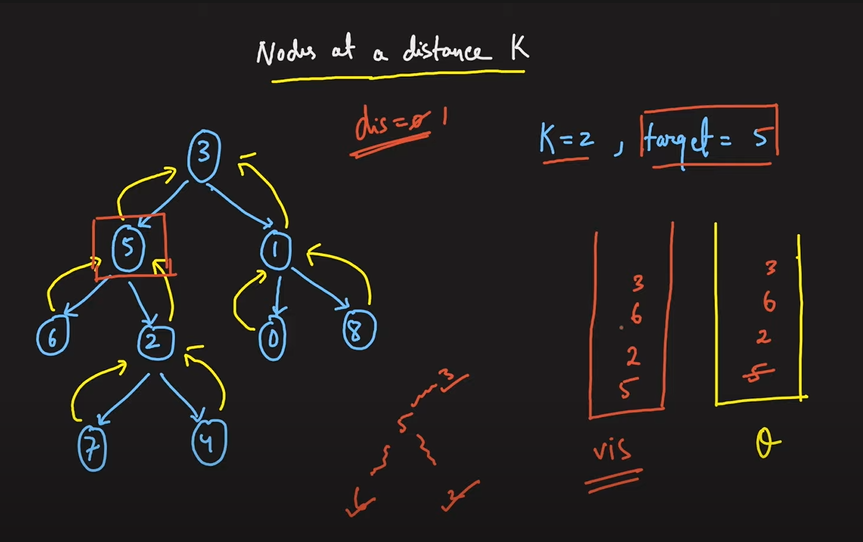 Nodes at a distance K
dis=0 1
K=2 , target= 5
3
5
1
6
2
0
8
7
4
3
6
2
5
vis
3
6
2
5
Q
3
5
6
2